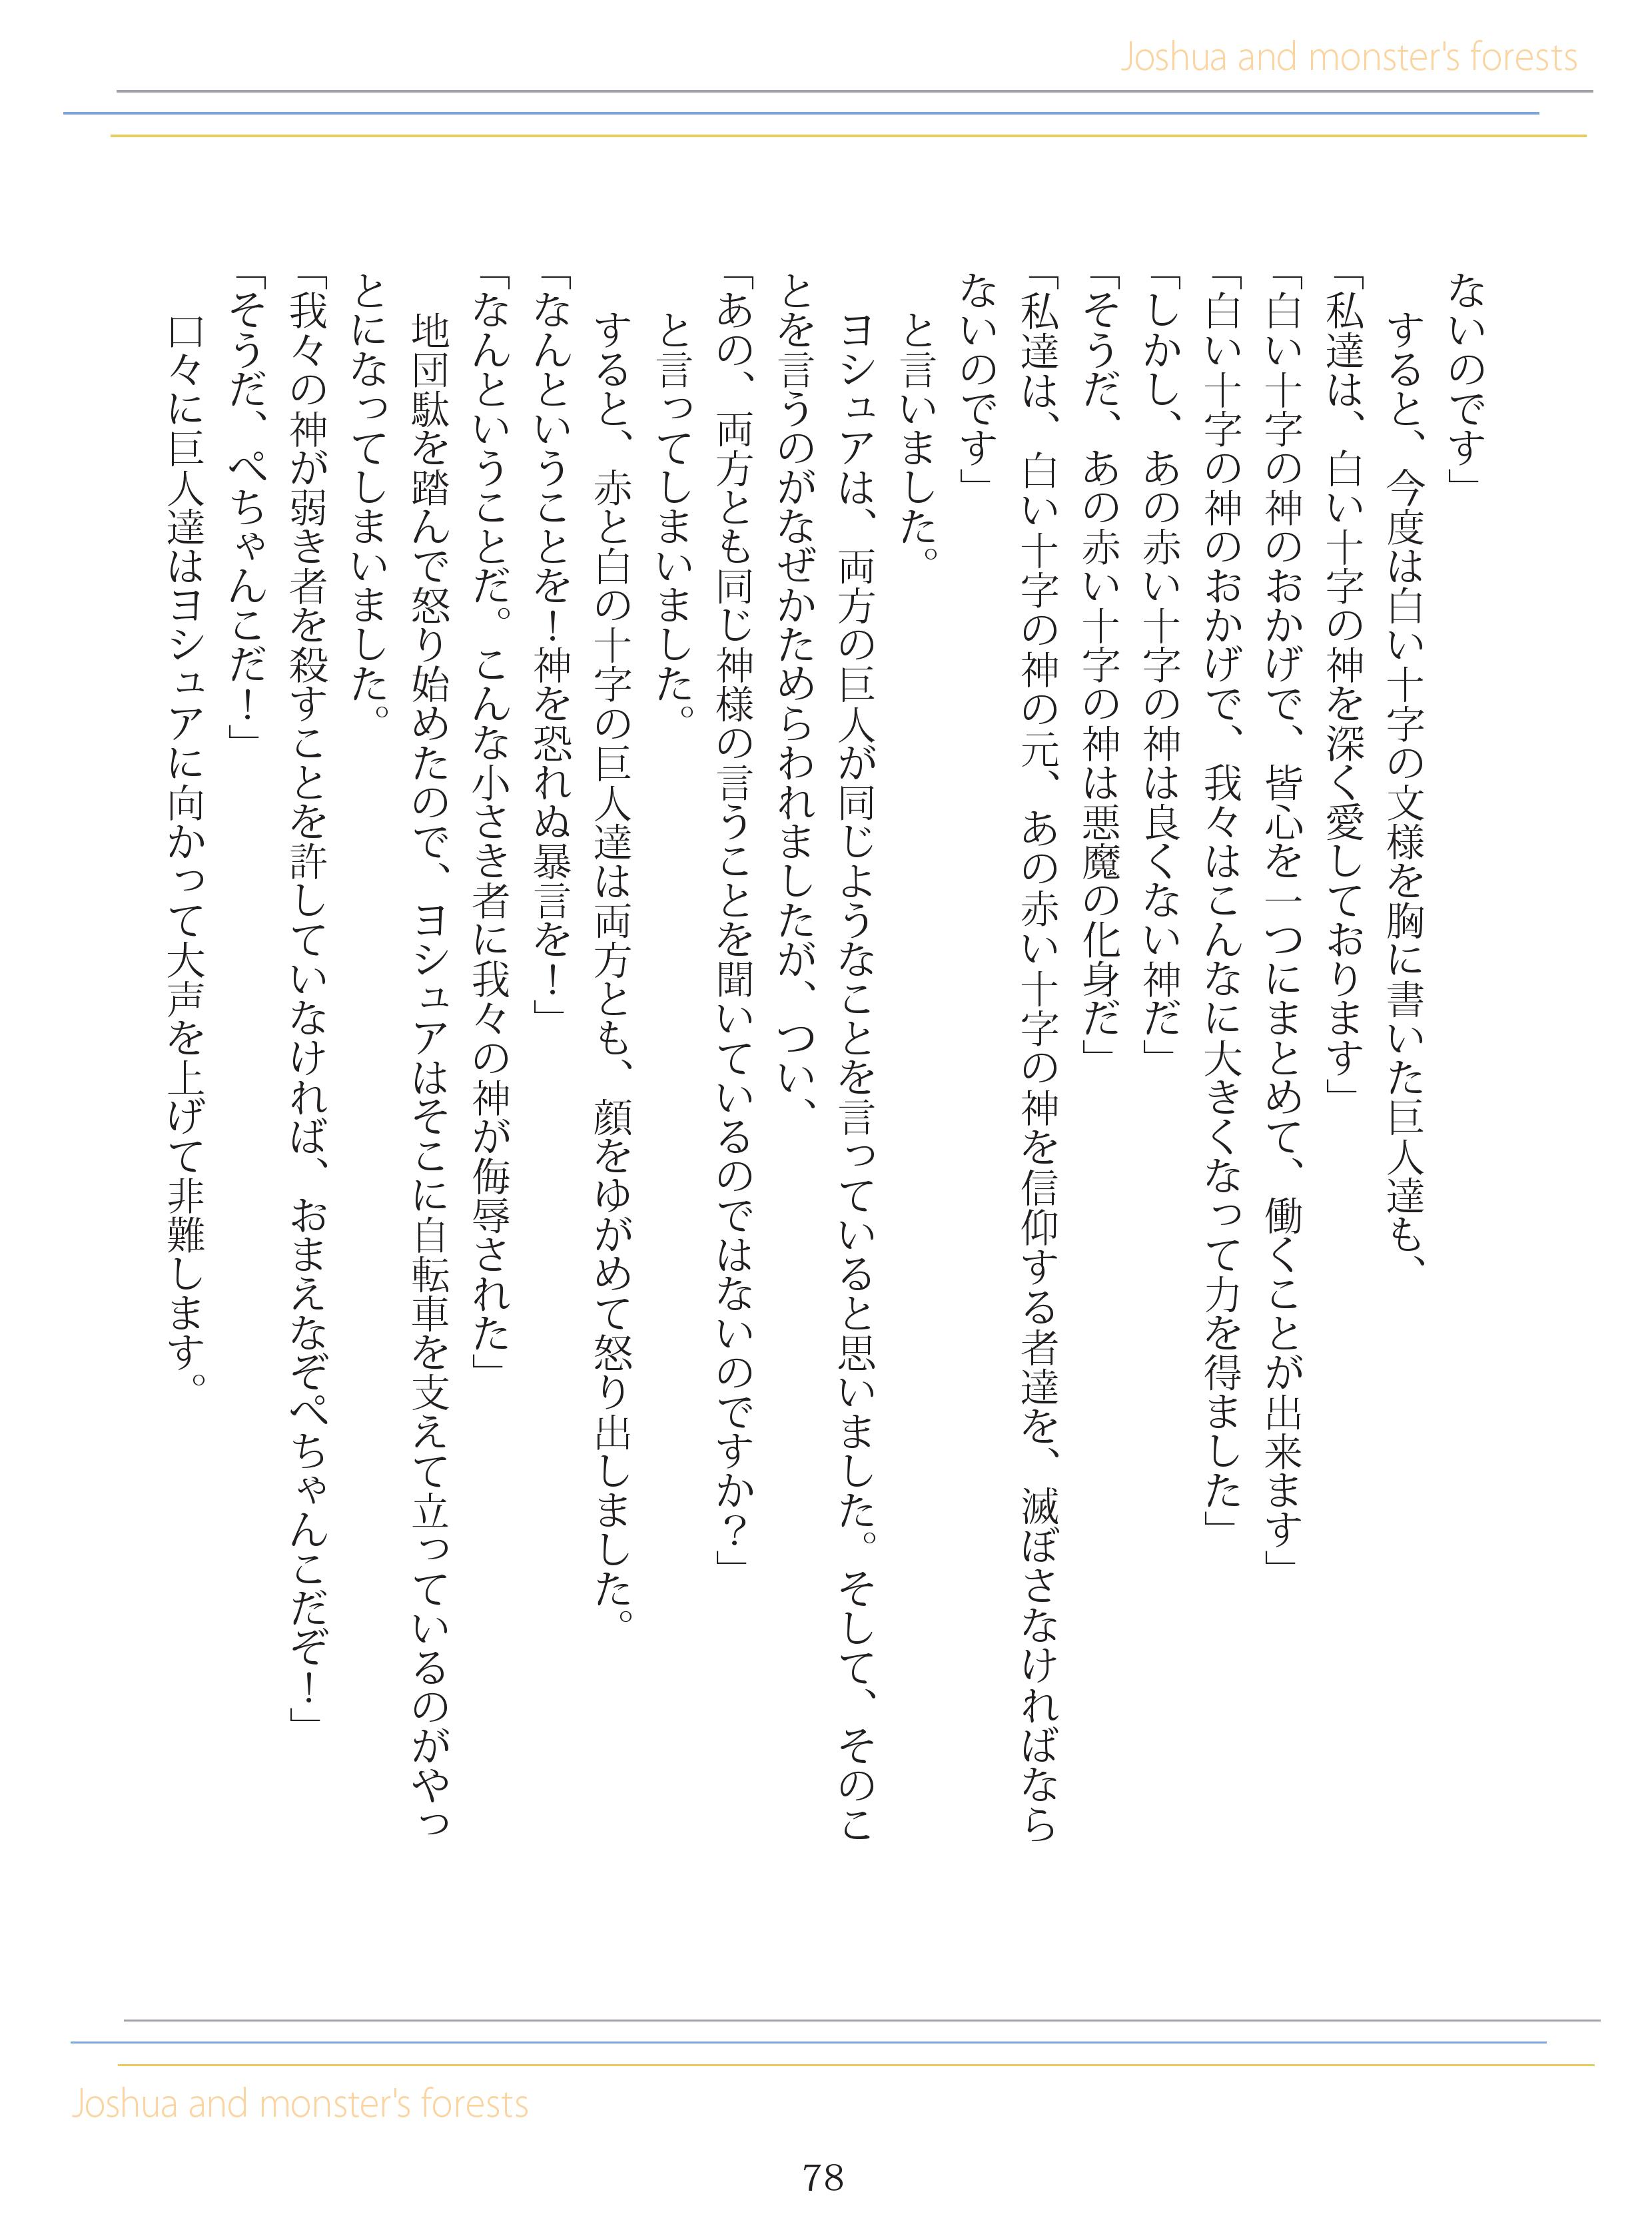 Joshua and monster's forests
ないのです」
すると、今度は白い十字の文様を胸に書いた巨人達も、
「私達は、白い十字の神を深く愛しております」
「白い十字の神のおかげで、皆心を一つにまとめて、働くことが出来ます」
「白い十字の神のおかげで、我々はこんなに大きくなって力を得ました」
「しかし、あの赤い十字の神は良くない神だ」
「そうだ、あの赤い十字の神は悪魔の化身だ」
「私達は、白い十字の神の元、あの赤い十字の神を信仰する者達を、滅ぼさなければなら
ないのです」
と言いました。
ヨシュアは、両方の巨人が同じようなことを言っていると思いました。そして、そのこ
とを言うのがなぜかためらわれましたが、つい、
「あの、両方とも同じ神様の言うことを聞いているのではないのですか？」
と言ってしまいました。
すると、赤と白の十字の巨人達は両方とも、顔をゆがめて怒り出しました。
「なんということを！神を恐れぬ暴言を！」
「なんということだ。こんな小さき者に我々の神が侮辱された」
地団駄を踏んで怒り始めたので、ヨシュアはそこに自転車を支えて立っているのがやっ
とになってしまいました。
「我々の神が弱き者を殺すことを許していなければ、おまえなぞぺちゃんこだぞ！」
「そうだ、ぺちゃんこだ！」
口々に巨人達はヨシュアに向かって大声を上げて非難します。
Joshua and monster's forests
78